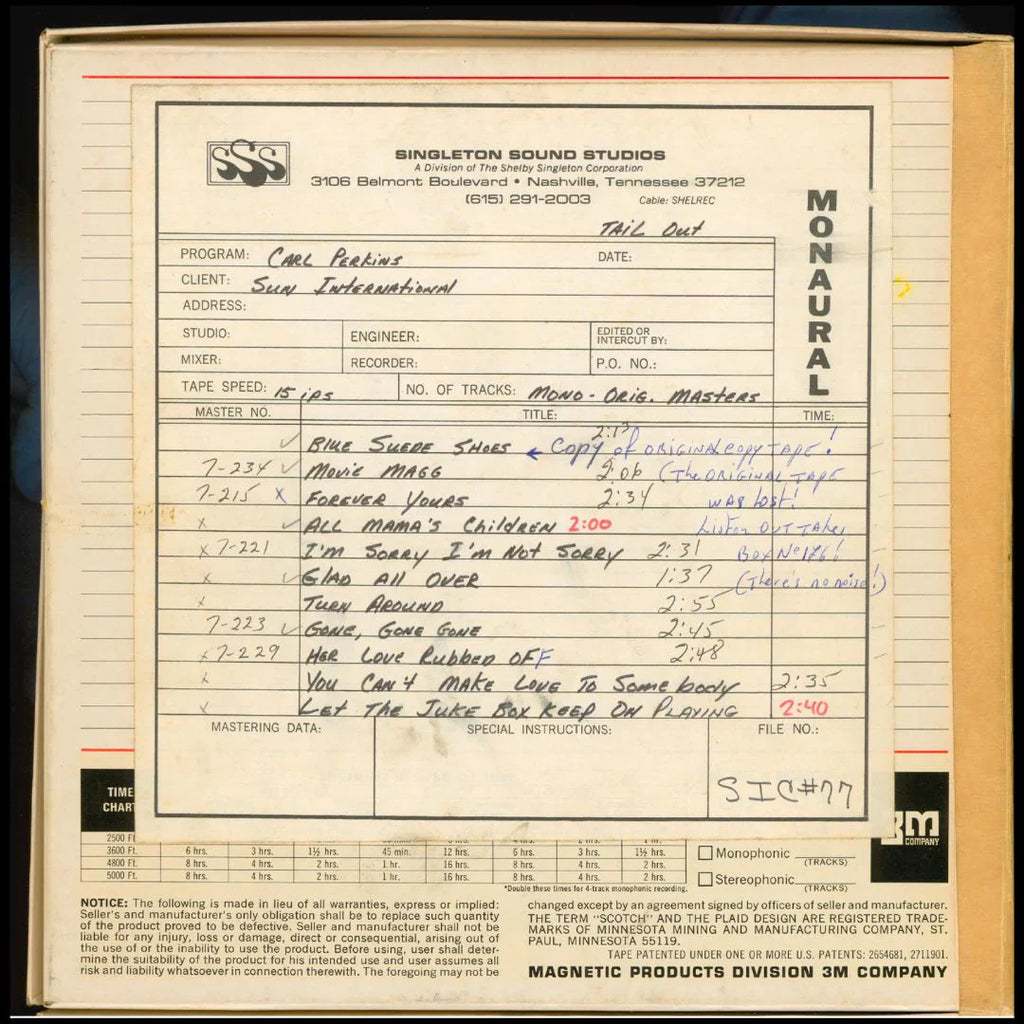 SSS
SINGLETON SOUND STUDIOS
A Division of The Shelby Singleton Corporation
3106 Belmont Boulevard • Nashville, Tennessee 37212
(615) 291-2003 Cable: SHELREC
MONAURAL
TAIL OUT
PROGRAM: CARL PERKINS DATE:
CLIENT: SUN INTERNATIONAL
ADDRESS:
STUDIO: ENGINEER: EDITED OR INTERCUT BY:
MIXER: RECORDER: P.O. NO.:
TAPE SPEED: 15 ips NO. OF TRACKS: MONO - ORIG. MASTERS
MASTER NO. TITLE: TIME:
✓ BLUE SUEDE SHOES 2:13 ← Copy of ORIGINAL COPY TAPE!
7-234 ✓ MOVIE MAGG 2:06 (The ORIGINAL TAPE
7-215 X FOREVER YOURS 2:34 WAS lost!
x ✓ ALL MAMA'S CHILDREN 2:00 Listen OUT Takes
x 7-221 I'M SORRY I'M NOT SORRY 2:31 Box No
x ✓ GLAD ALL OVER 1:37 (There's no noise!)
x TURN AROUND 2:55
7-223 ✓ GONE, GONE GONE 2:45
x 7-229 HER LOVE RUBBED OFF 2:48
x YOU CAN'T MAKE LOVE TO SOMEBODY 2:35
x LET THE JUKE BOX KEEP ON PLAYING 2:40
MASTERING DATA: SPECIAL INSTRUCTIONS: FILE NO.:
SIC#77
TIME
CHART
3M
COMPANY
2500 Ft.
3600 Ft. 6 hrs. 3 hrs. 1½ hrs. 45 min. 12 hrs. 6 hrs. 3 hrs. 1½ hrs.
4800 Ft. 8 hrs. 4 hrs. 2 hrs. 1 hr. 16 hrs. 8 hrs. 4 hrs. 2 hrs.
5000 Ft. 8 hrs. 4 hrs. 2 hrs. 1 hr. 16 hrs. 8 hrs. 4 hrs. 2 hrs.
*Double these times for 4-track monophonic recording.
Monophonic (TRACKS)
Stereophonic (TRACKS)
NOTICE: The following is made in lieu of all warranties, express or implied:
Seller's and manufacturer's only obligation shall be to replace such quantity
of the product proved to be defective. Seller and manufacturer shall not be
liable for any injury, loss or damage, direct or consequential, arising out of
the use of or the inability to use the product. Before using, user shall deter-
mine the suitability of the product for his intended use and user assumes all
risk and liability whatsoever in connection therewith. The foregoing may not be
changed except by an agreement signed by officers of seller and manufacturer.
THE TERM "SCOTCH" AND THE PLAID DESIGN ARE REGISTERED TRADE-
MARKS OF MINNESOTA MINING AND MANUFACTURING COMPANY, ST.
PAUL, MINNESOTA 55119.
TAPE PATENTED UNDER ONE OR MORE U.S. PATENTS: 2654681, 2711901.
MAGNETIC PRODUCTS DIVISION 3M COMPANY